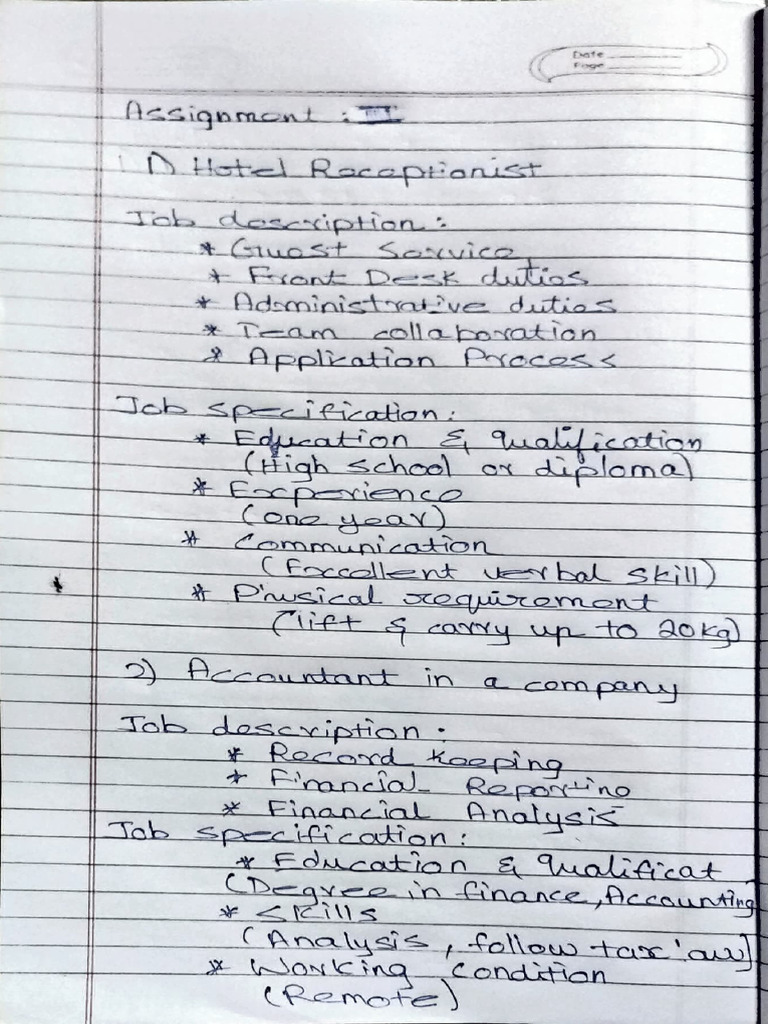 Date
Page
Assignment : II
1) Hotel Receptionist
Job description :
* Guest Service
* Front Desk duties
* Administrative duties
* Team collaboration
* Application Process
Job specification :
* Education & qualification
(High school or diploma)
* Experience
(one year)
* Communication
(Excellent verbal skill)
* Physical requirement
(lift & carry up to 20kg)
2) Accountant in a company
Job description :
* Record keeping
* Financial Reporting
* Financial Analysis
Job specification :
* Education & Qualificat
(Degree in finance, Accounting
* Skills
(Analysis, follow tax law)
* Working condition
(Remote)